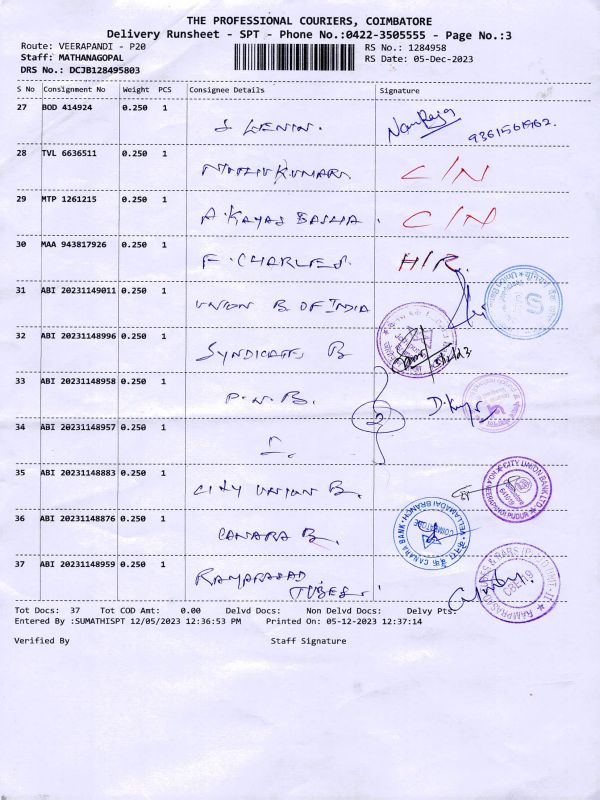 THE PROFESSIONAL COURIERS, COIMBATORE
Delivery Runsheet - SPT - Phone No.:0422-3505555 - Page No.:3
Route: VEERAPANDI - P20
RS No.: 1284958
Staff: MATHANAGOPAL
RS Date: 05-Dec-2023
DRS No.: DCJB128495803
S No Consignment No Weight PCS Consignee Details Signature
27 BOD 414924 0.250 1
J LENIN. 9361561962.
28 TVL 6636511 0.250 1
C/N
29 MTP 1261215 0.250 1
A. KAYAS BASHA. C/N
30 MAA 943817926 0.250 1
F. CHARLES. H/R.
31 ABI 20231149011 0.250 1
UNION B OF INDIA
32 ABI 20231148996 0.250 1
SYNDICATE B
33 ABI 20231148958 0.250 1
P.N.B. 2
34 ABI 20231148957 0.250 1
35 ABI 20231148883 0.250 1
CITY UNION B. CITY UNION BANK LTD
36 ABI 20231148876 0.250 1
CANARA B. CANARA BANK VELLAMADAI BRANCH COIMBATORE
37 ABI 20231148959 0.250 1
RAMPRASAD
TUBES.
Tot Docs: 37 Tot COD Amt: 0.00 Delvd Docs: Non Delvd Docs: Delvy Pts:
Entered By :SUMATHISPT 12/05/2023 12:36:53 PM Printed On: 05-12-2023 12:37:14
Verified By Staff Signature